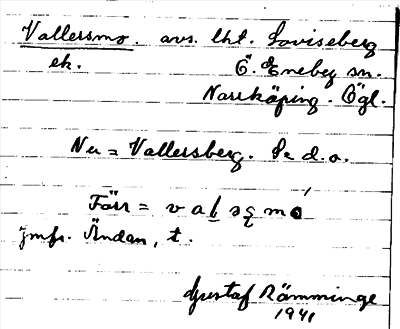 Vallersmo. avs. lht. Loviseberg
ek. Ö. Eneby sn.
Norrköping. Ögl.
Nu = Vallersberg. Se d.o.
Förr = v a l s ę m ó
jmfr. Ändan, t.
Gustaf Rämminge
1941